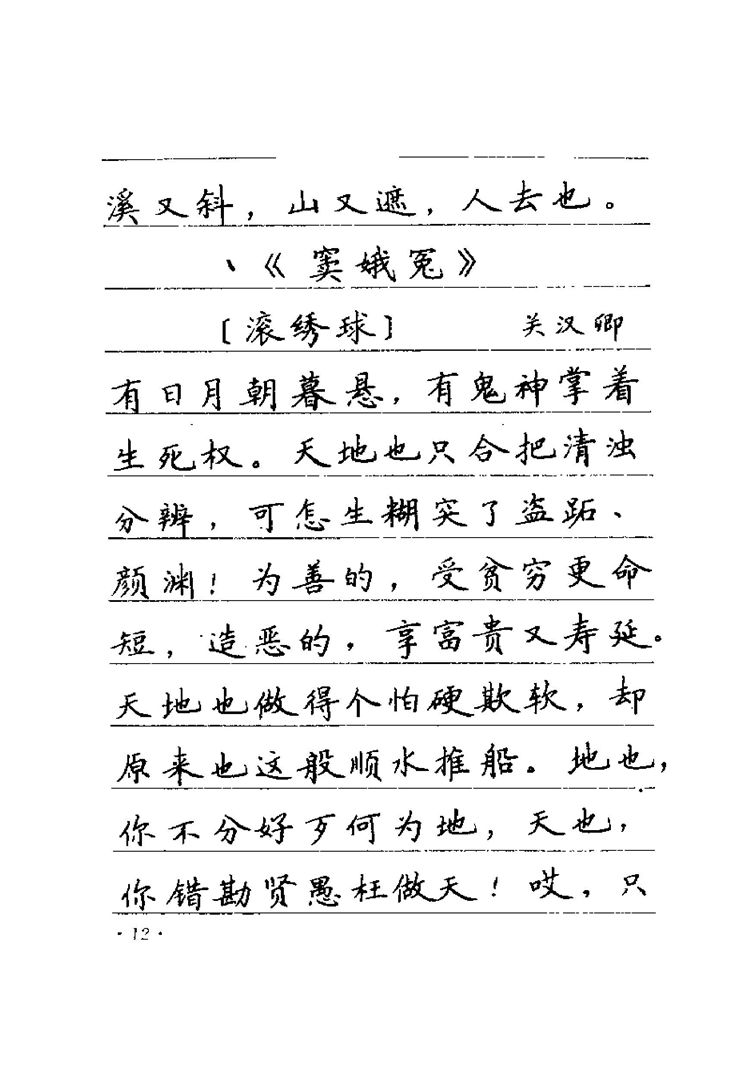 溪又斜，山又遮，人去也。
、《窦娥冤》
［滚绣球］ 关汉卿
有日月朝暮悬，有鬼神掌着
生死权。天地也只合把清浊
分辨，可怎生糊突了盗跖、
颜渊！为善的，受贫穷更命
短，造恶的，享富贵又寿延。
天地也做得个怕硬欺软，却
原来也这般顺水推船。地也，
你不分好歹何为地，天也，
你错勘贤愚枉做天！哎，只
·12·